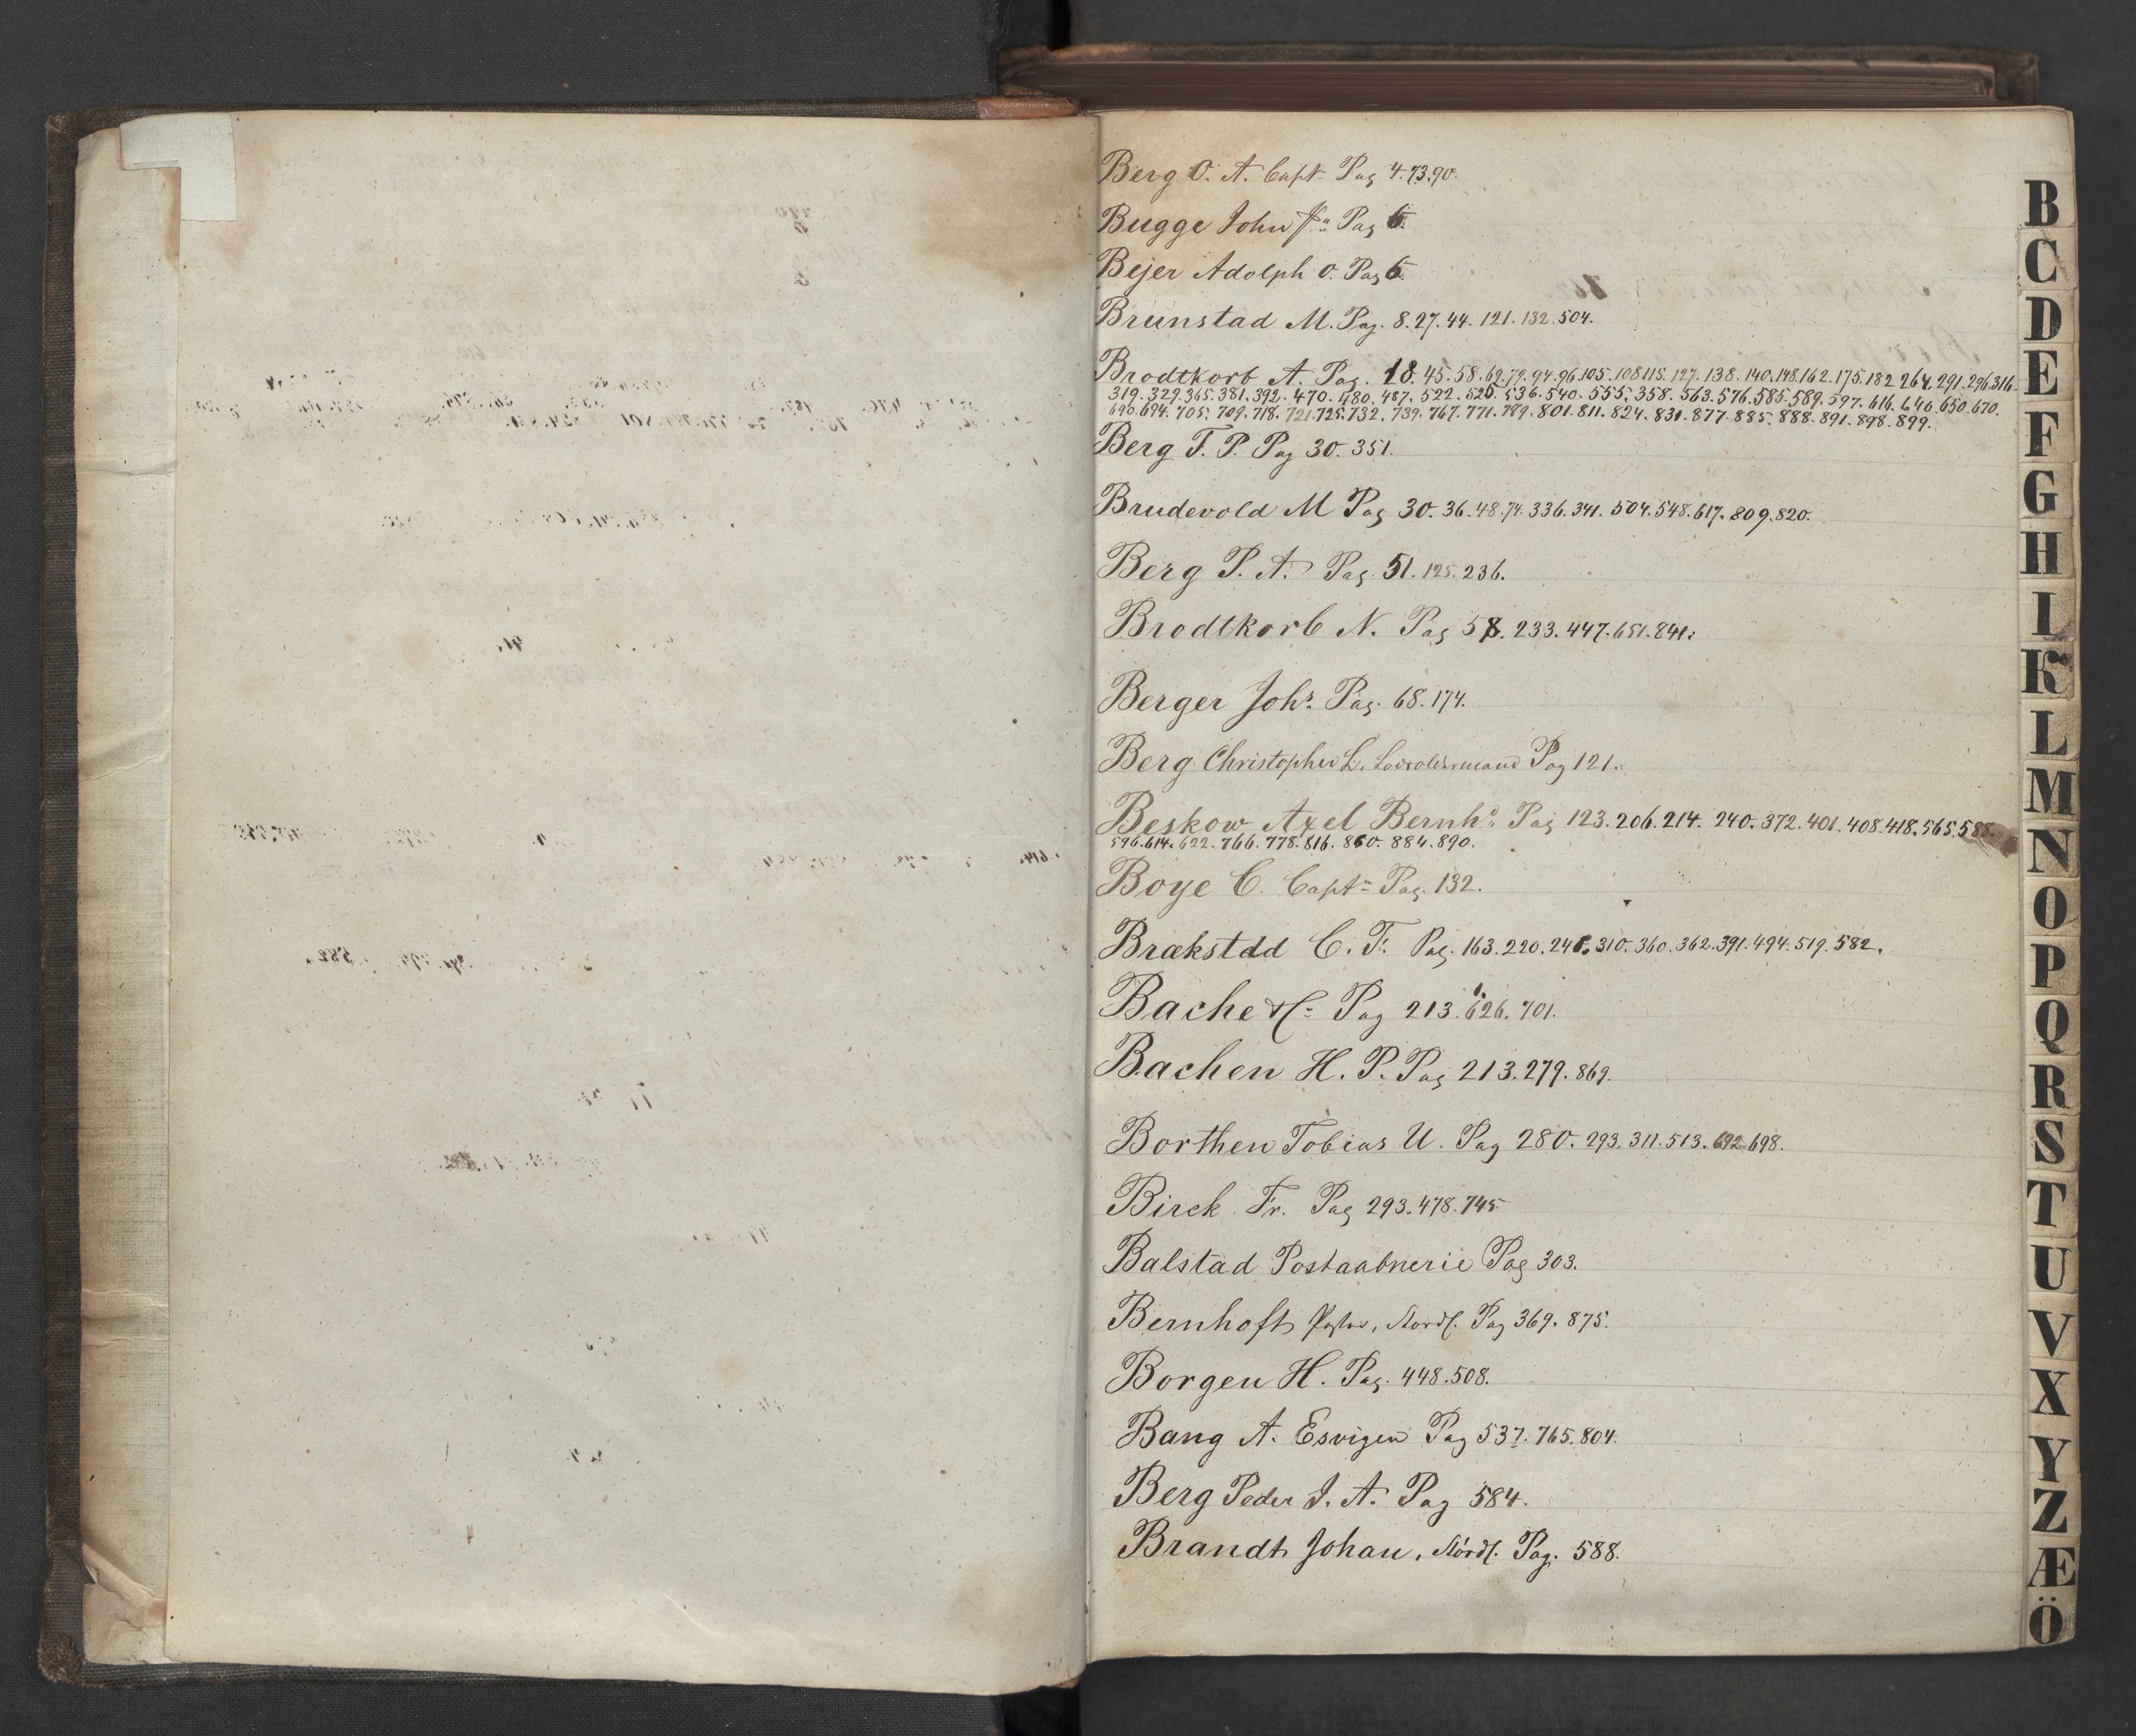 Berg O. A. Capt. Pag 4.73.90.
Bugge John Jr. Pag 6.
Bejer Adolph O. Pag 6.
Brunstad M. Pag. 8.27.44.121.132.504.
Brodtkorb A. Pag. 18.45.58.62.79.94.96.105.108.115.127.138.140.148.162.175.182.264.291.296.316.
319.329.365.381.392.470.480.487.522.525.536.540.555.358.563.576.585.589.597.616.646.650.670.
690.694.705.709.718.721.725.732.739.767.771.789.801.811.824.831.877.885.888.891.898.899.
Berg T. P. Pag 30.351.
Brudevold M Pag 30.36.48.74.336.341.504.548.617.809.820.
Berg P. A. Pag. 51.125.236.
Brodtkorb N. Pag 58.233.447.651.841.
Berger Johs. Pag. 68.174.
Berg Christopher L. Pag 121.
Beskow Axel Bernhd. Pag 123.206.214.240.372.401.408.418.565.588.
596.614.622.766.778.816.860.884.890.
Boye C. Captn Pag. 132.
Brækstad C. F. Pag. 163.220.310.360.362.391.494.519.582.
Bache & C. Pag 213.626.701.
Bachen H. P. Pag 213.279.869.
Borthen Tobias U. Pag 280.293.311.513.692.698.
Birck Fr. Pag 293.478.745
Balstad Postaabnerie Pag 303.
Bernhoft Pastor, Nordl. Pag 369.875.
Borgen H. Pag. 448.508.
Bang A. Esvigen Pag 537.765.804.
Berg Peder J. A. Pag 584.
Brandt Johan, Nordl. Pag. 588.
B
C
D
E
F
G
H
I
K
L
M
N
O
P
Q
R
S
T
U
V
X
Y
Z
Æ
Ö